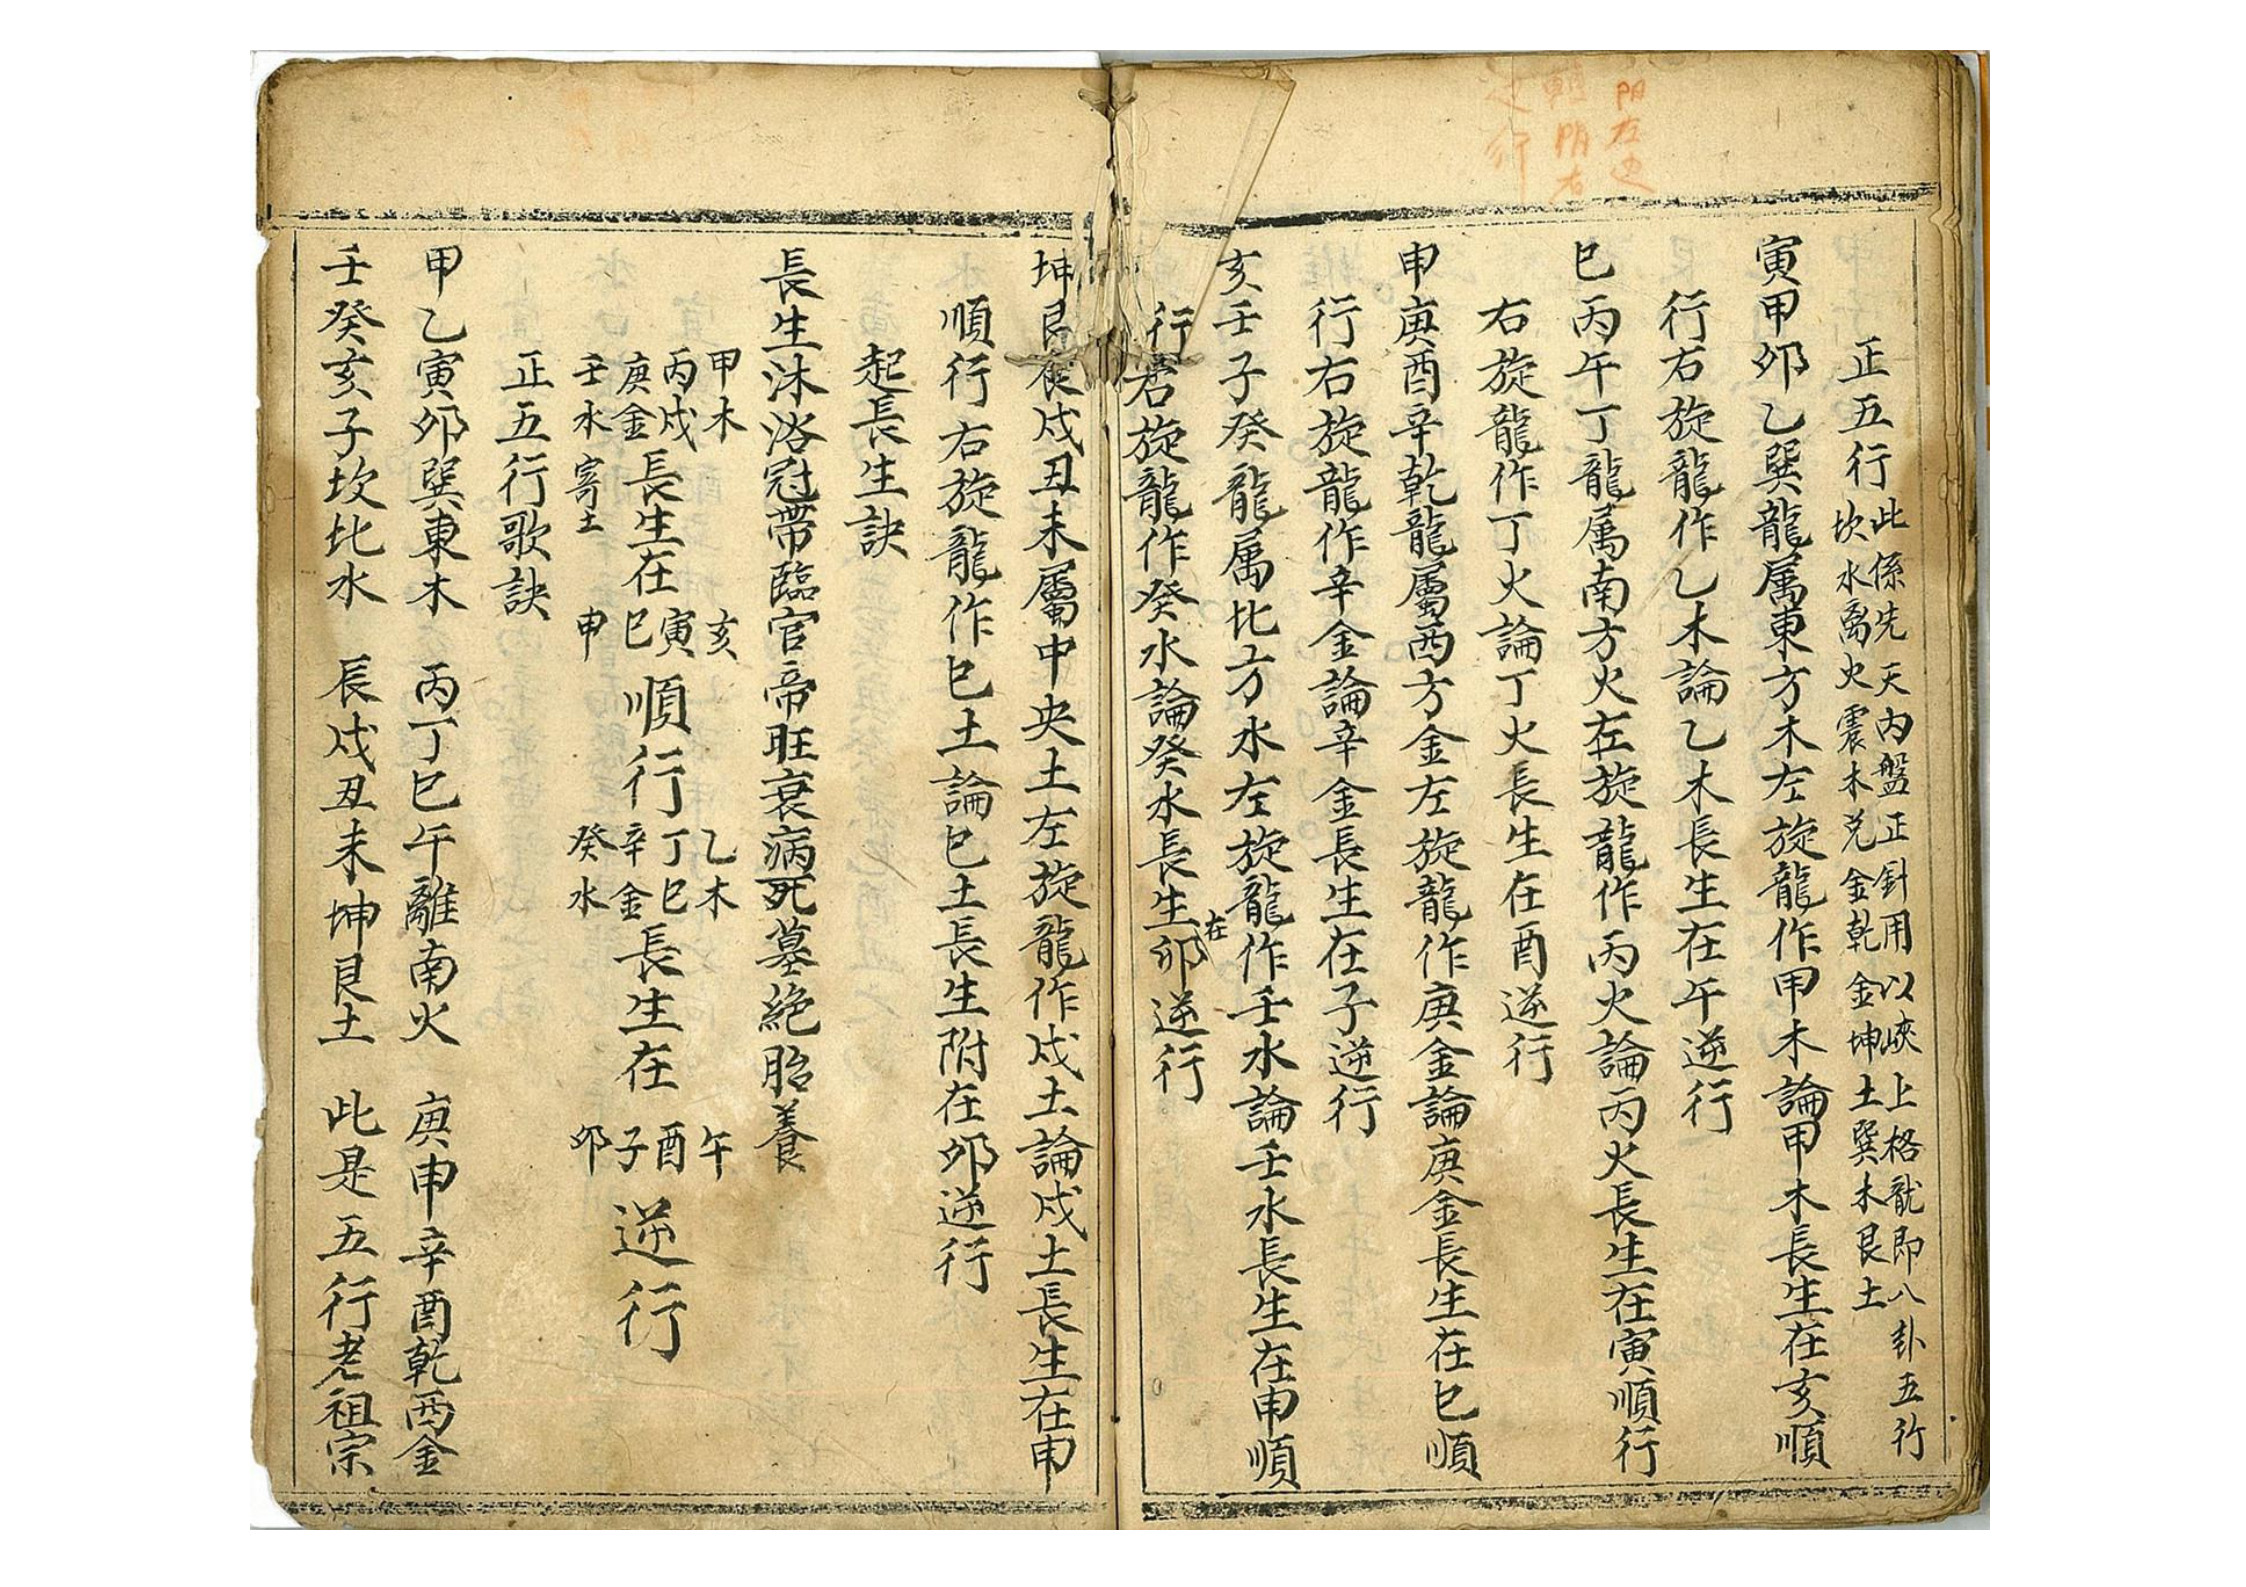 正五行
此係先天内盤正針用以峽上格龍即八卦五行
坎水离火震木兑金乾金坤土巽木艮土
寅甲卯乙巽龍属東方木左旋龍作甲木論甲木長生在亥順
行右旋龍作乙木論乙木長生在午逆行
巳丙午丁龍属南方火左旋龍作丙火論丙火長生在寅順行
右旋龍作丁火論丁火長生在酉逆行
申庚酉辛乾龍屬西方金左旋龍作庚金論庚金長生在巳順
行右旋龍作辛金論辛金長生在子逆行
亥壬子癸龍属北方水左旋龍作壬水論壬水長生在申順
行右旋龍作癸水論癸水長生在卯逆行
坤艮辰戌丑未屬中央土左旋龍作戊土論戊土長生在申
順行右旋龍作己土論己土長生附在卯逆行
起長生訣
長生沐浴冠帶臨官帝旺衰病死墓絶胎養
甲木
丙戊
庚金
壬水寄土
長生在
亥
寅
巳
申
順行
乙木
丁己
辛金
癸水
長生在
午
酉
子
卯
逆行
正五行歌訣
甲乙寅卯巽東木 丙丁巳午離南火 庚申辛酉乾西金
壬癸亥子坎北水 辰戌丑未坤艮土 此是五行老祖宗